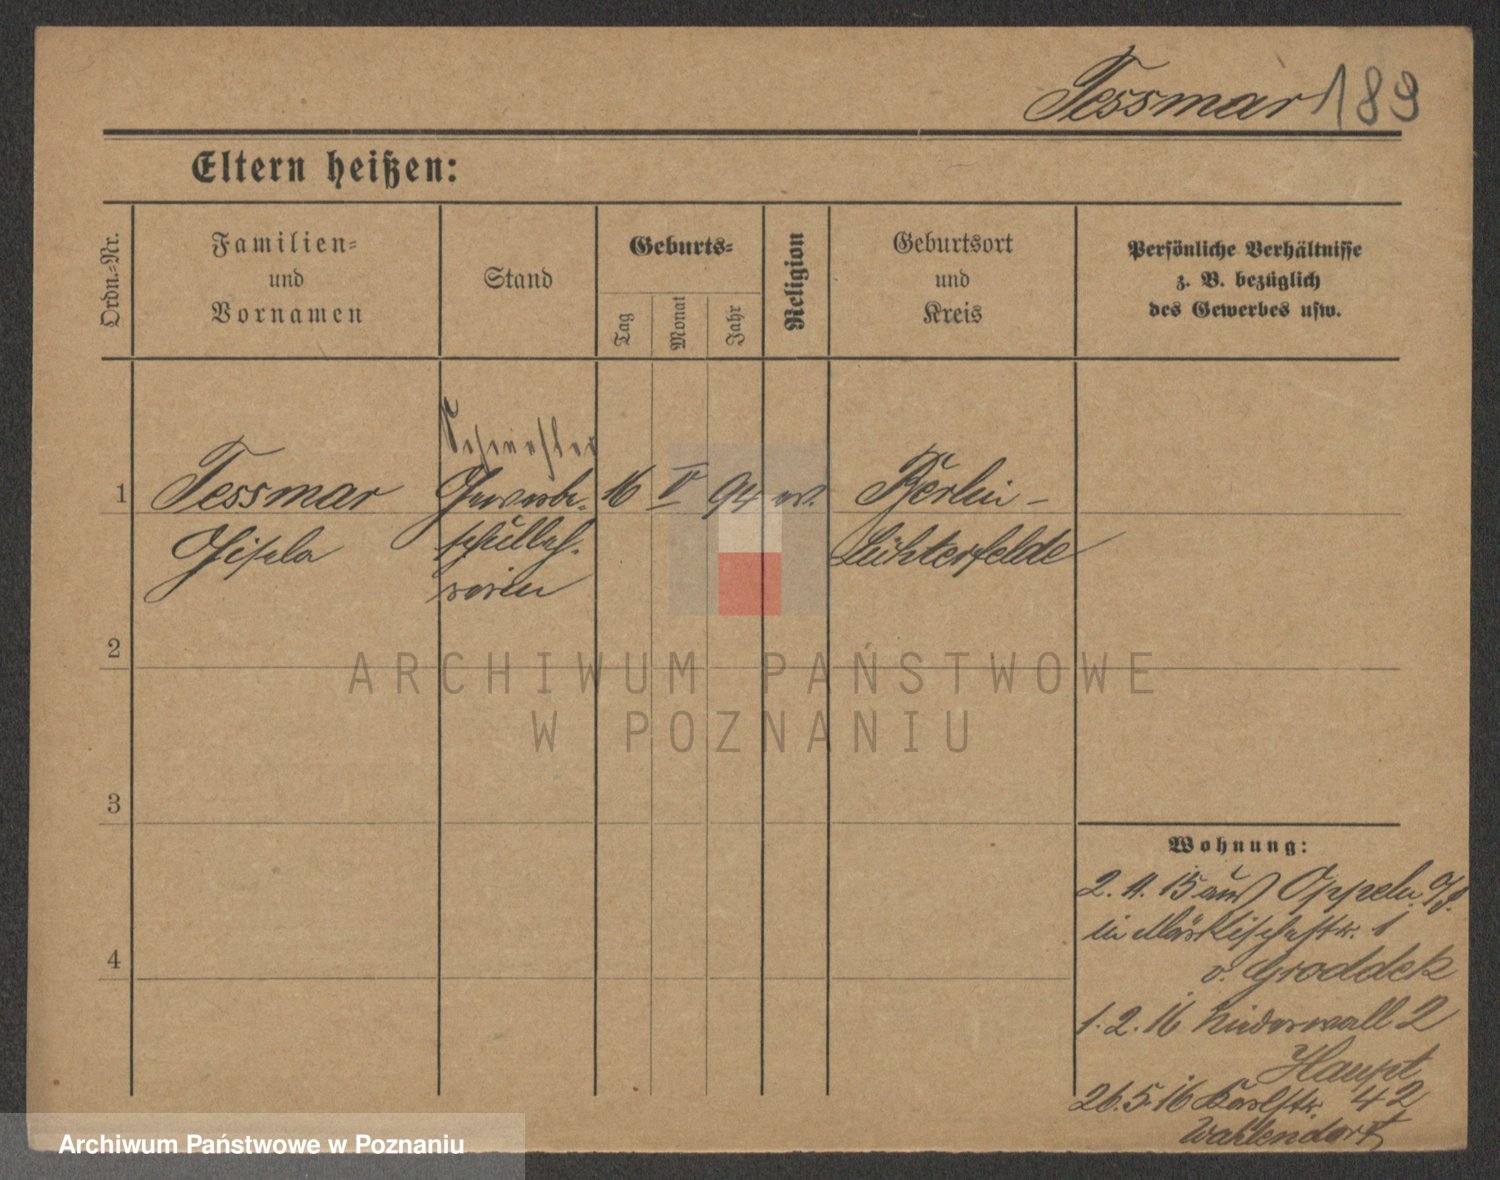 Tessmar 189
Eltern heißen:
Ordn.-Nr.
Familien-
und
Vornamen
Stand
Geburts-
Tag
Monat
Jahr
Religion
Geburtsort
und
Kreis
Persönliche Verhältnisse
z. B. bezüglich
des Gewerbes usw.
Schwester
1 Tessmar Gewerbe- 16 V 94 ev. Berlin-
Gisela schulleh- Lichterfelde
rerin
2
3
4
ARCHIWUM PAŃSTWOWE
W POZNANIU
Wohnung:
2. 4. 15 aus Oppeln
in Märkischestr. 1
v. Groddek
1. 2. 16 Niederwall 2
Haupt
26. 5. 16 Karlstr. 42
Wahlendorf
Archiwum Państwowe w Poznaniu